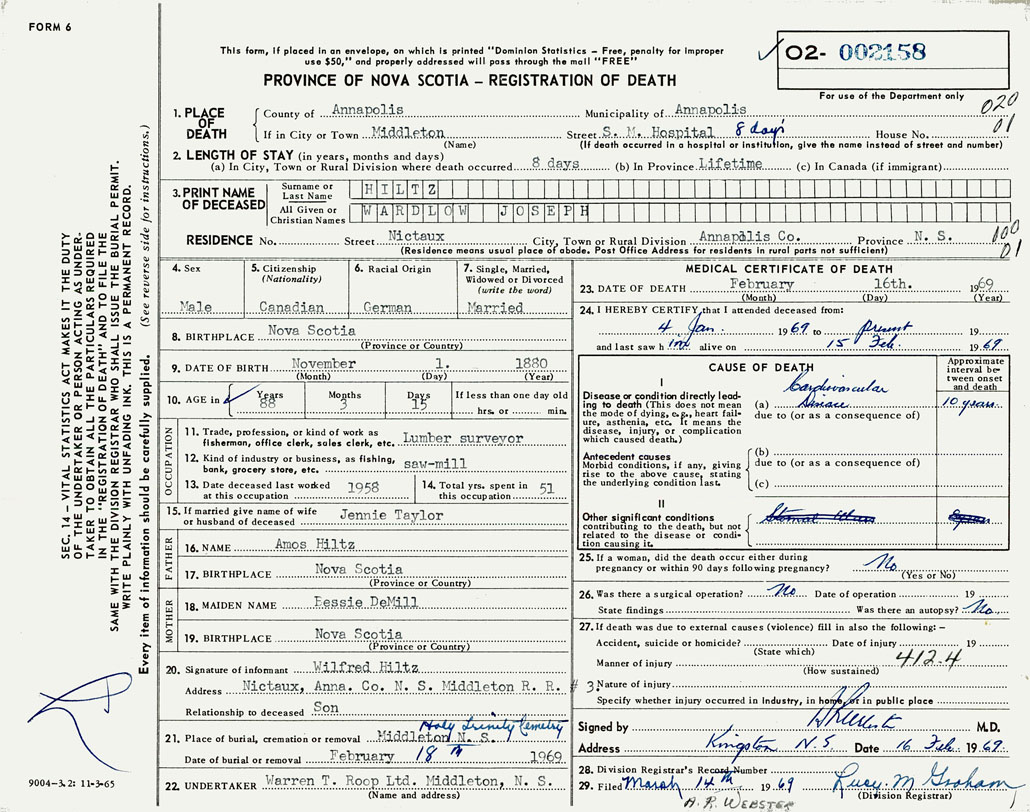 FORM 6
This form, if placed in an envelope, on which is printed "Dominion Statistics – Free, penalty for improper
use $50," and properly addressed will pass through the mail "FREE"
PROVINCE OF NOVA SCOTIA – REGISTRATION OF DEATH
✓ 02- 002158
For use of the Department only
020
01
1. PLACE OF DEATH
County of Annapolis Municipality of Annapolis
If in City or Town Middleton Street S. M. Hospital 8 days House No.
(Name) (If death occurred in a hospital or institution, give the name instead of street and number)
2. LENGTH OF STAY (in years, months and days)
(a) In City, Town or Rural Division where death occurred 8 days (b) In Province Lifetime (c) In Canada (if immigrant)
3. PRINT NAME OF DECEASED
Surname or Last Name HILTZ
All Given or Christian Names WARDLOW JOSEPH
RESIDENCE No. Street Nictaux City, Town or Rural Division Annapolis Co. Province N. S.
(Residence means usual place of abode. Post Office Address for residents in rural parts not sufficient)
100
01
4. Sex Male
5. Citizenship (Nationality) Canadian
6. Racial Origin German
7. Single, Married, Widowed or Divorced (write the word) Married
8. BIRTHPLACE Nova Scotia
(Province or Country)
9. DATE OF BIRTH November 1. 1880
(Month) (Day) (Year)
10. AGE in Years 88 Months 3 Days 15 If less than one day old hrs. or min.
OCCUPATION
11. Trade, profession, or kind of work as
fisherman, office clerk, sales clerk, etc. Lumber surveyor
12. Kind of industry or business, as fishing,
bank, grocery store, etc. saw-mill
13. Date deceased last worked at this occupation 1958
14. Total yrs. spent in this occupation 51
15. If married give name of wife
or husband of deceased Jennie Taylor
FATHER
16. NAME Amos Hiltz
17. BIRTHPLACE Nova Scotia
(Province or Country)
MOTHER
18. MAIDEN NAME Bessie DeMill
19. BIRTHPLACE Nova Scotia
(Province or Country)
20. Signature of informant Wilfred Hiltz
Address Nictaux, Anna. Co. N. S. Middleton R. R. # 3.
Relationship to deceased Son
Holy Trinity Cemetry
21. Place of burial, cremation or removal Middleton N. S.
Date of burial or removal February 18th 1969
22. UNDERTAKER Warren T. Roop Ltd. Middleton, N. S.
(Name and address)
MEDICAL CERTIFICATE OF DEATH
23. DATE OF DEATH February 16th. 1969
(Month) (Day) (Year)
24. I HEREBY CERTIFY, that I attended deceased from:
4 Jan. 1969 to present 19
and last saw him alive on 15 Feb. 1969
CAUSE OF DEATH
Approximate interval between onset and death
I
Disease or condition directly leading to death (This does not mean the mode of dying, e.g., heart failure, asthenia, etc. It means the disease, injury, or complication which caused death.)
(a) Cardiovascular Disease 10 years
due to (or as a consequence of)
Antecedent causes
Morbid conditions, if any, giving rise to the above cause, stating the underlying condition last.
(b)
due to (or as a consequence of)
(c)
II
Other significant conditions
contributing to the death, but not related to the disease or condition causing it.
25. If a woman, did the death occur either during
pregnancy or within 90 days following pregnancy? No
(Yes or No)
26. Was there a surgical operation? No Date of operation 19
State findings Was there an autopsy? No
27. If death was due to external causes (violence) fill in also the following: –
Accident, suicide or homicide? Date of injury 19
(State which)
Manner of injury 412.4
(How sustained)
Nature of injury
Specify whether injury occurred in Industry, in home, or in public place
Signed by M.D.
Address Kingston N.S. Date 16 Feb 1969
28. Division Registrar's Record Number
29. Filed March 14th 1969 Lucy M Graham
(Division Registrar)
A. R. WEBSTER
SEC. 14 – VITAL STATISTICS ACT MAKES IT THE DUTY
OF THE UNDERTAKER OR PERSON ACTING AS UNDER-
TAKER TO OBTAIN ALL THE PARTICULARS REQUIRED
IN THE "REGISTRATION OF DEATH" AND TO FILE THE
SAME WITH THE DIVISION REGISTRAR WHO SHALL ISSUE THE BURIAL PERMIT.
WRITE PLAINLY WITH UNFADING INK. THIS IS A PERMANENT RECORD.
Every item of information should be carefully supplied. (See reverse side for instructions.)
9004-3.2: 11-3-65